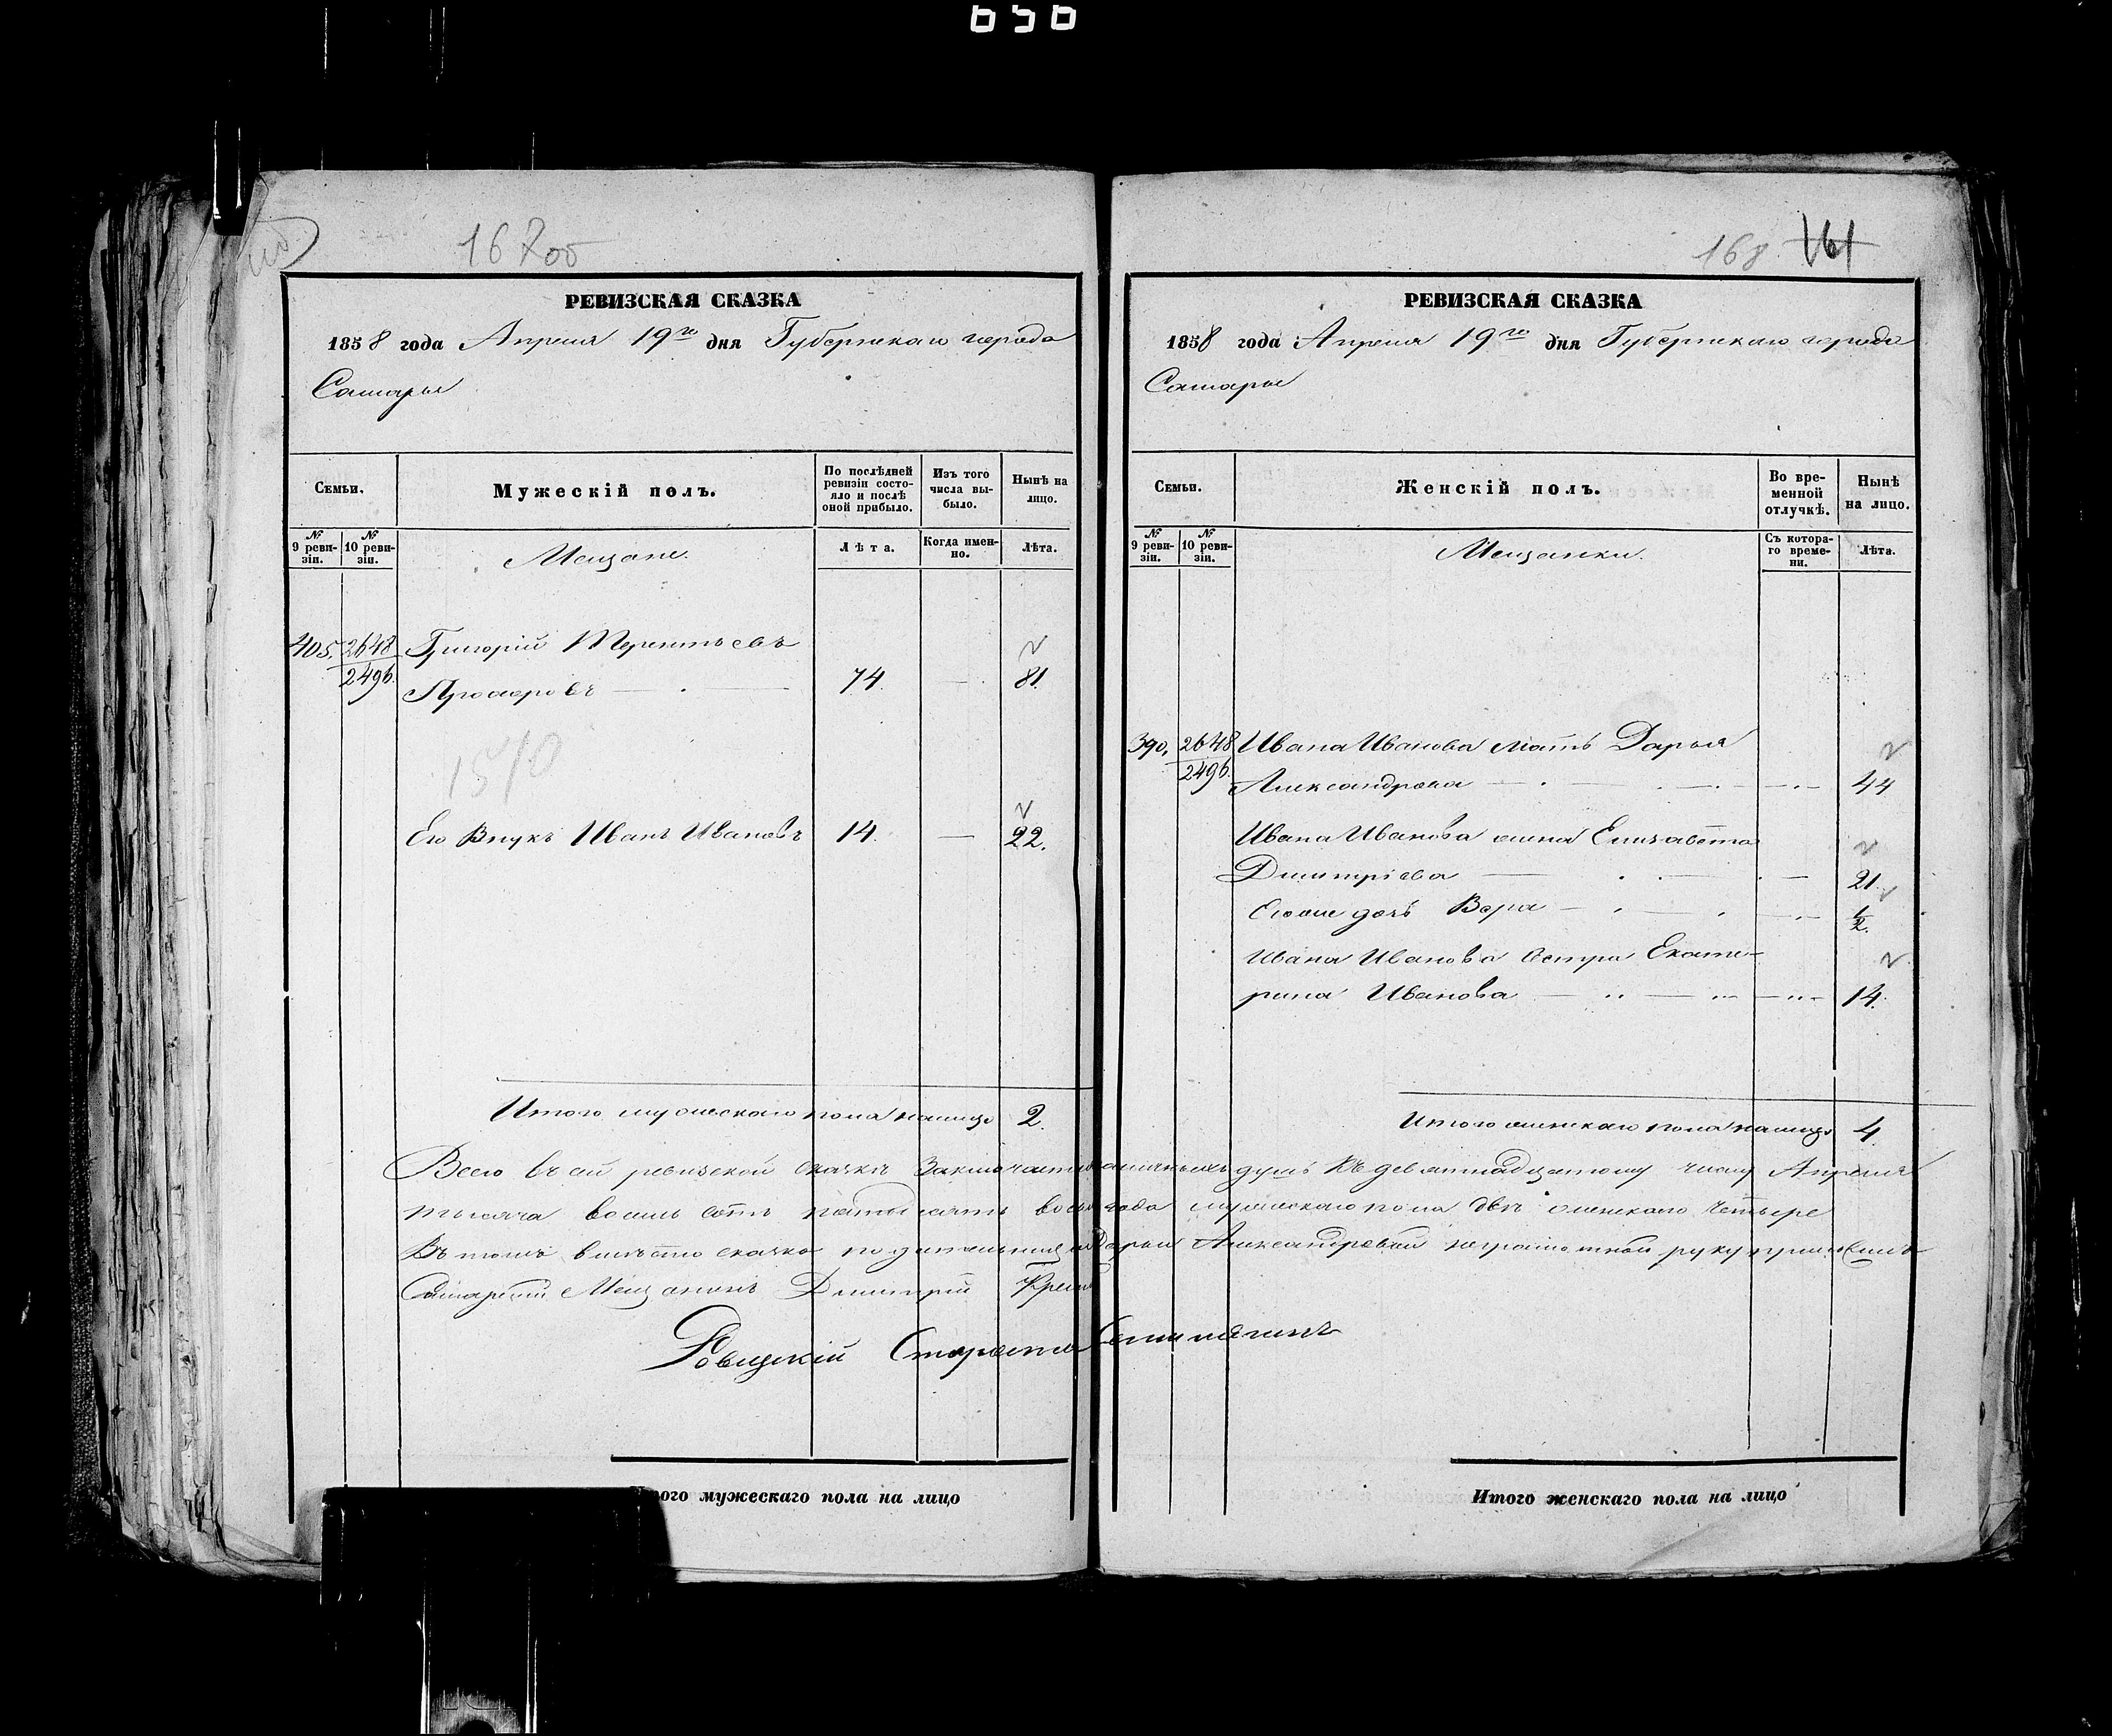 656
16700
РЕВИЗСКАЯ СКАЗКА
1858 года Апреля 19го дня Губернскаго города
Самары
Семьи.
Мужескій полъ.
По послѣдней ревизіи состояло и послѣ оной прибыло.
Изъ того числа выбыло.
Нынѣ на лицо.
№ 9 ревизіи.
№ 10 ревизіи.
Мещане
Лѣта.
Когда именно.
Лѣта.
405. 2648 Григорій Терентьевъ
2496. Прохоровъ — 74. — 81.
1510
Его Внукъ Иванъ Ивановъ 14. — 22.
Итого мужескаго пола налицо 2.
168 161
РЕВИЗСКАЯ СКАЗКА
1858 года Апреля 19го дня Губернскаго города
Самары
Семьи.
Женскій полъ.
Во временной отлучкѣ.
Нынѣ на лицо.
№ 9 ревизіи.
№ 10 ревизіи.
Мещанки.
Съ котораго времени.
Лѣта.
390. 2648 Ивана Иванова мать Дарья
2496. Александрова — 44
Ивана Иванова жена Елизавета
Дмитріева — 21.
Егоже дочь Вера — 1/2.
Ивана Иванова Сестра Екате-
рина Иванова — 14.
Итого женскаго пола налицо 4
Всего въ сей ревизской сказкѣ Заключается наличныхъ душъ Къ девятнадцатому числу Апреля
тысяча восемь сотъ пятьдесятъ восьм года мужескаго пола двѣ женскаго четыре
Въ томъ вместо скаско подательницы Дарьи Александровой неграмотной руку приложилъ
Самарский Мещанинъ Дмитрий
Староста
Итого мужескаго пола на лицо
Итого женскаго пола на лицо